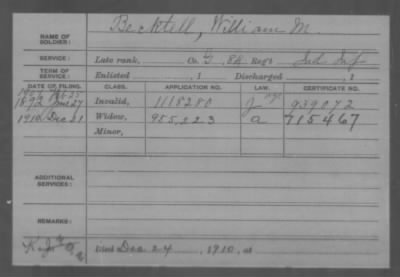 Becktell, William M.
NAME OF SOLDIER:
SERVICE: Late rank, Co. G, 88 Reg't Ind Inf
TERM OF SERVICE: Enlisted , 1 Discharged , 1
DATE OF FILING. CLASS. APPLICATION NO. LAW. CERTIFICATE NO.
1892 June 27 Invalid, 1118280 939072
1910 Dec 31 Widow, 955,223 a 715467
Minor,
ADDITIONAL SERVICES:
REMARKS:
Died Dec 24, 1910, at